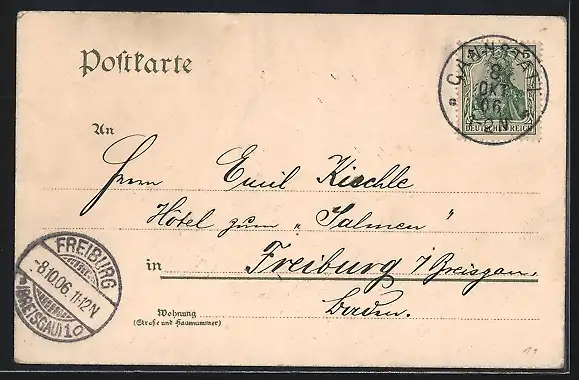 Postkarte
CANNSTATT
8
OKT
06
5-2N
DEUTSCHES REICH
An
Herrn Emil Kiechle
Hôtel zum „Salmen“
in Freiburg i/Breisgau.
Baden.
Wohnung
(Straße und Hausnummer)
FREIBURG
-8.10.06.11-12N
(BREISGAU) 1 o